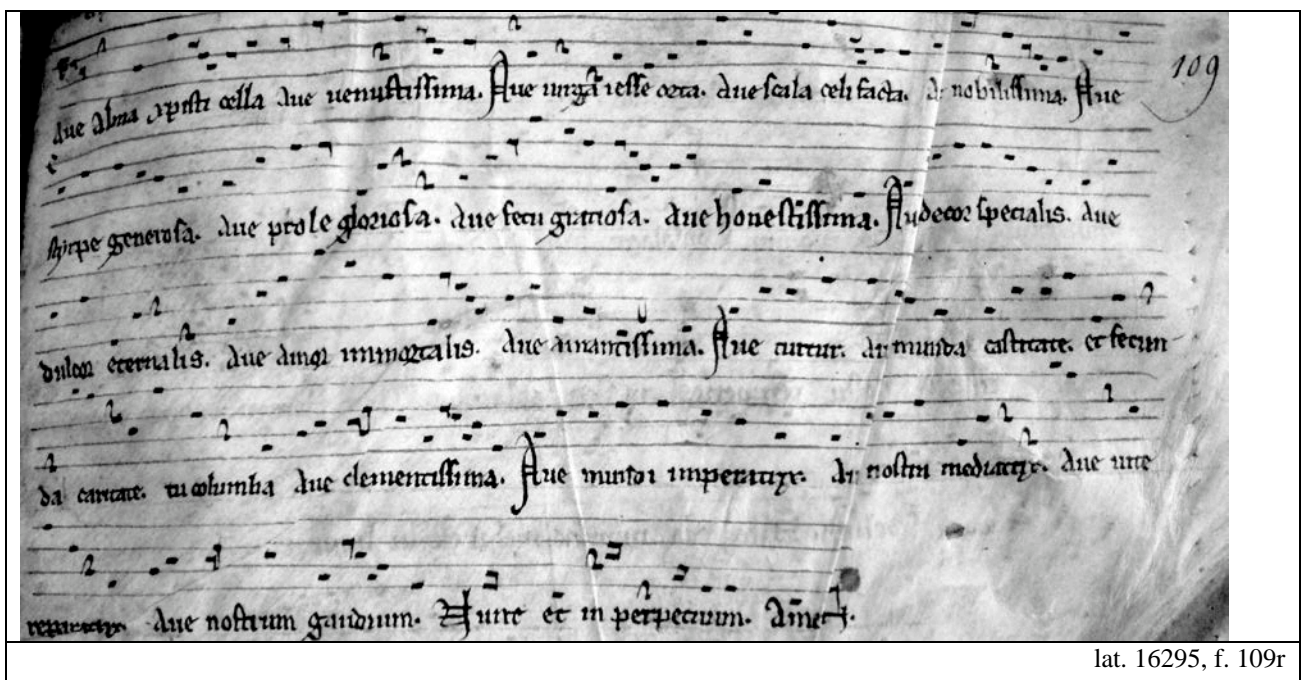 109
Aue alma xpisti cella Aue uenustissima. Aue uirga iesse orta. Aue scala celi facta. A nobilissima. Aue
styrpe generosa. Aue prole gloriosa. Aue fetu gratiosa. Aue honestissima. Au decor specialis. Aue
dulcor eternalis. Aue amor immortalis. Aue amantissima. Aue turtur. A munda castitate. et fecun
da caritate. tu columba Aue clementissima. Aue mundi imperatrix. A nostri mediatrix. Aue uite
reparatrix. Aue nostrum gaudium. Nunc et in perpetuum. Amen.
lat. 16295, f. 109r